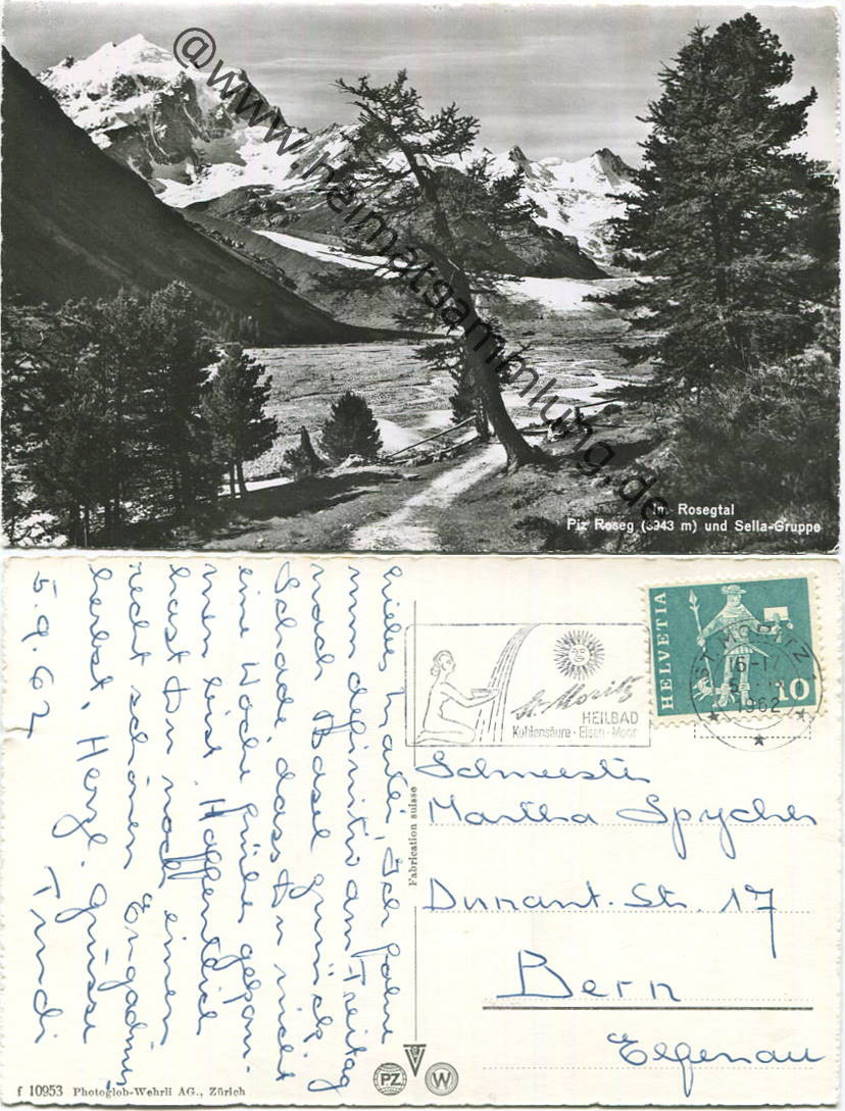 @www.heimatsammlung.de
Im Rosegtal
Piz Roseg (3943 m) und Sella-Gruppe
Liebes Marteli, Ich fahre
nun definitiv am Freitag
nach Basel zurück.
Schade, dass Du nicht
eine Woche früher gekom-
men bist. Hoffentlich
hast Du noch einen
recht schönen Engadiner
herbst. Herzl. Grüsse
Trudi
5.9.62
St. Moritz
HEILBAD
Kohlensäure · Eisen · Moor
HELVETIA
10
ST. MORITZ
1962
Fabrication suisse
Schwester
Martha Spycher
Dunant-Str. 17
Bern
Elfenau
PZ
W
f 10953 Photoglob-Wehrli AG., Zürich